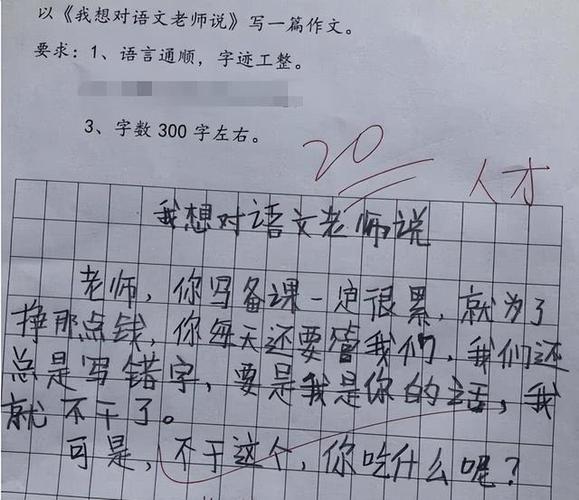 以《我想对语文老师说》写一篇作文。
要求：1、语言通顺，字迹工整。
3、字数 300 字左右。
20
人才
我想对语文老师说
老师，你写备课一定很累，就为了
挣那点钱，你每天还要管我们，我们还
总是写错字，要是我是你的话，我
就不干了。
可是，不干这个，你吃什么呢？